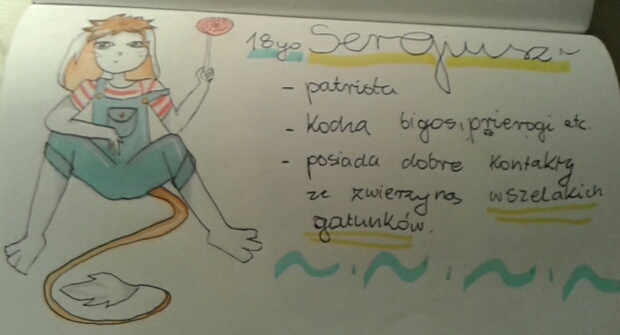 18yo Sergiusz~
- patrista
- Kocha bigos, pierogi etc.
- posiada dobre kontakty
ze zwierzyną wszelakich
gatunków.